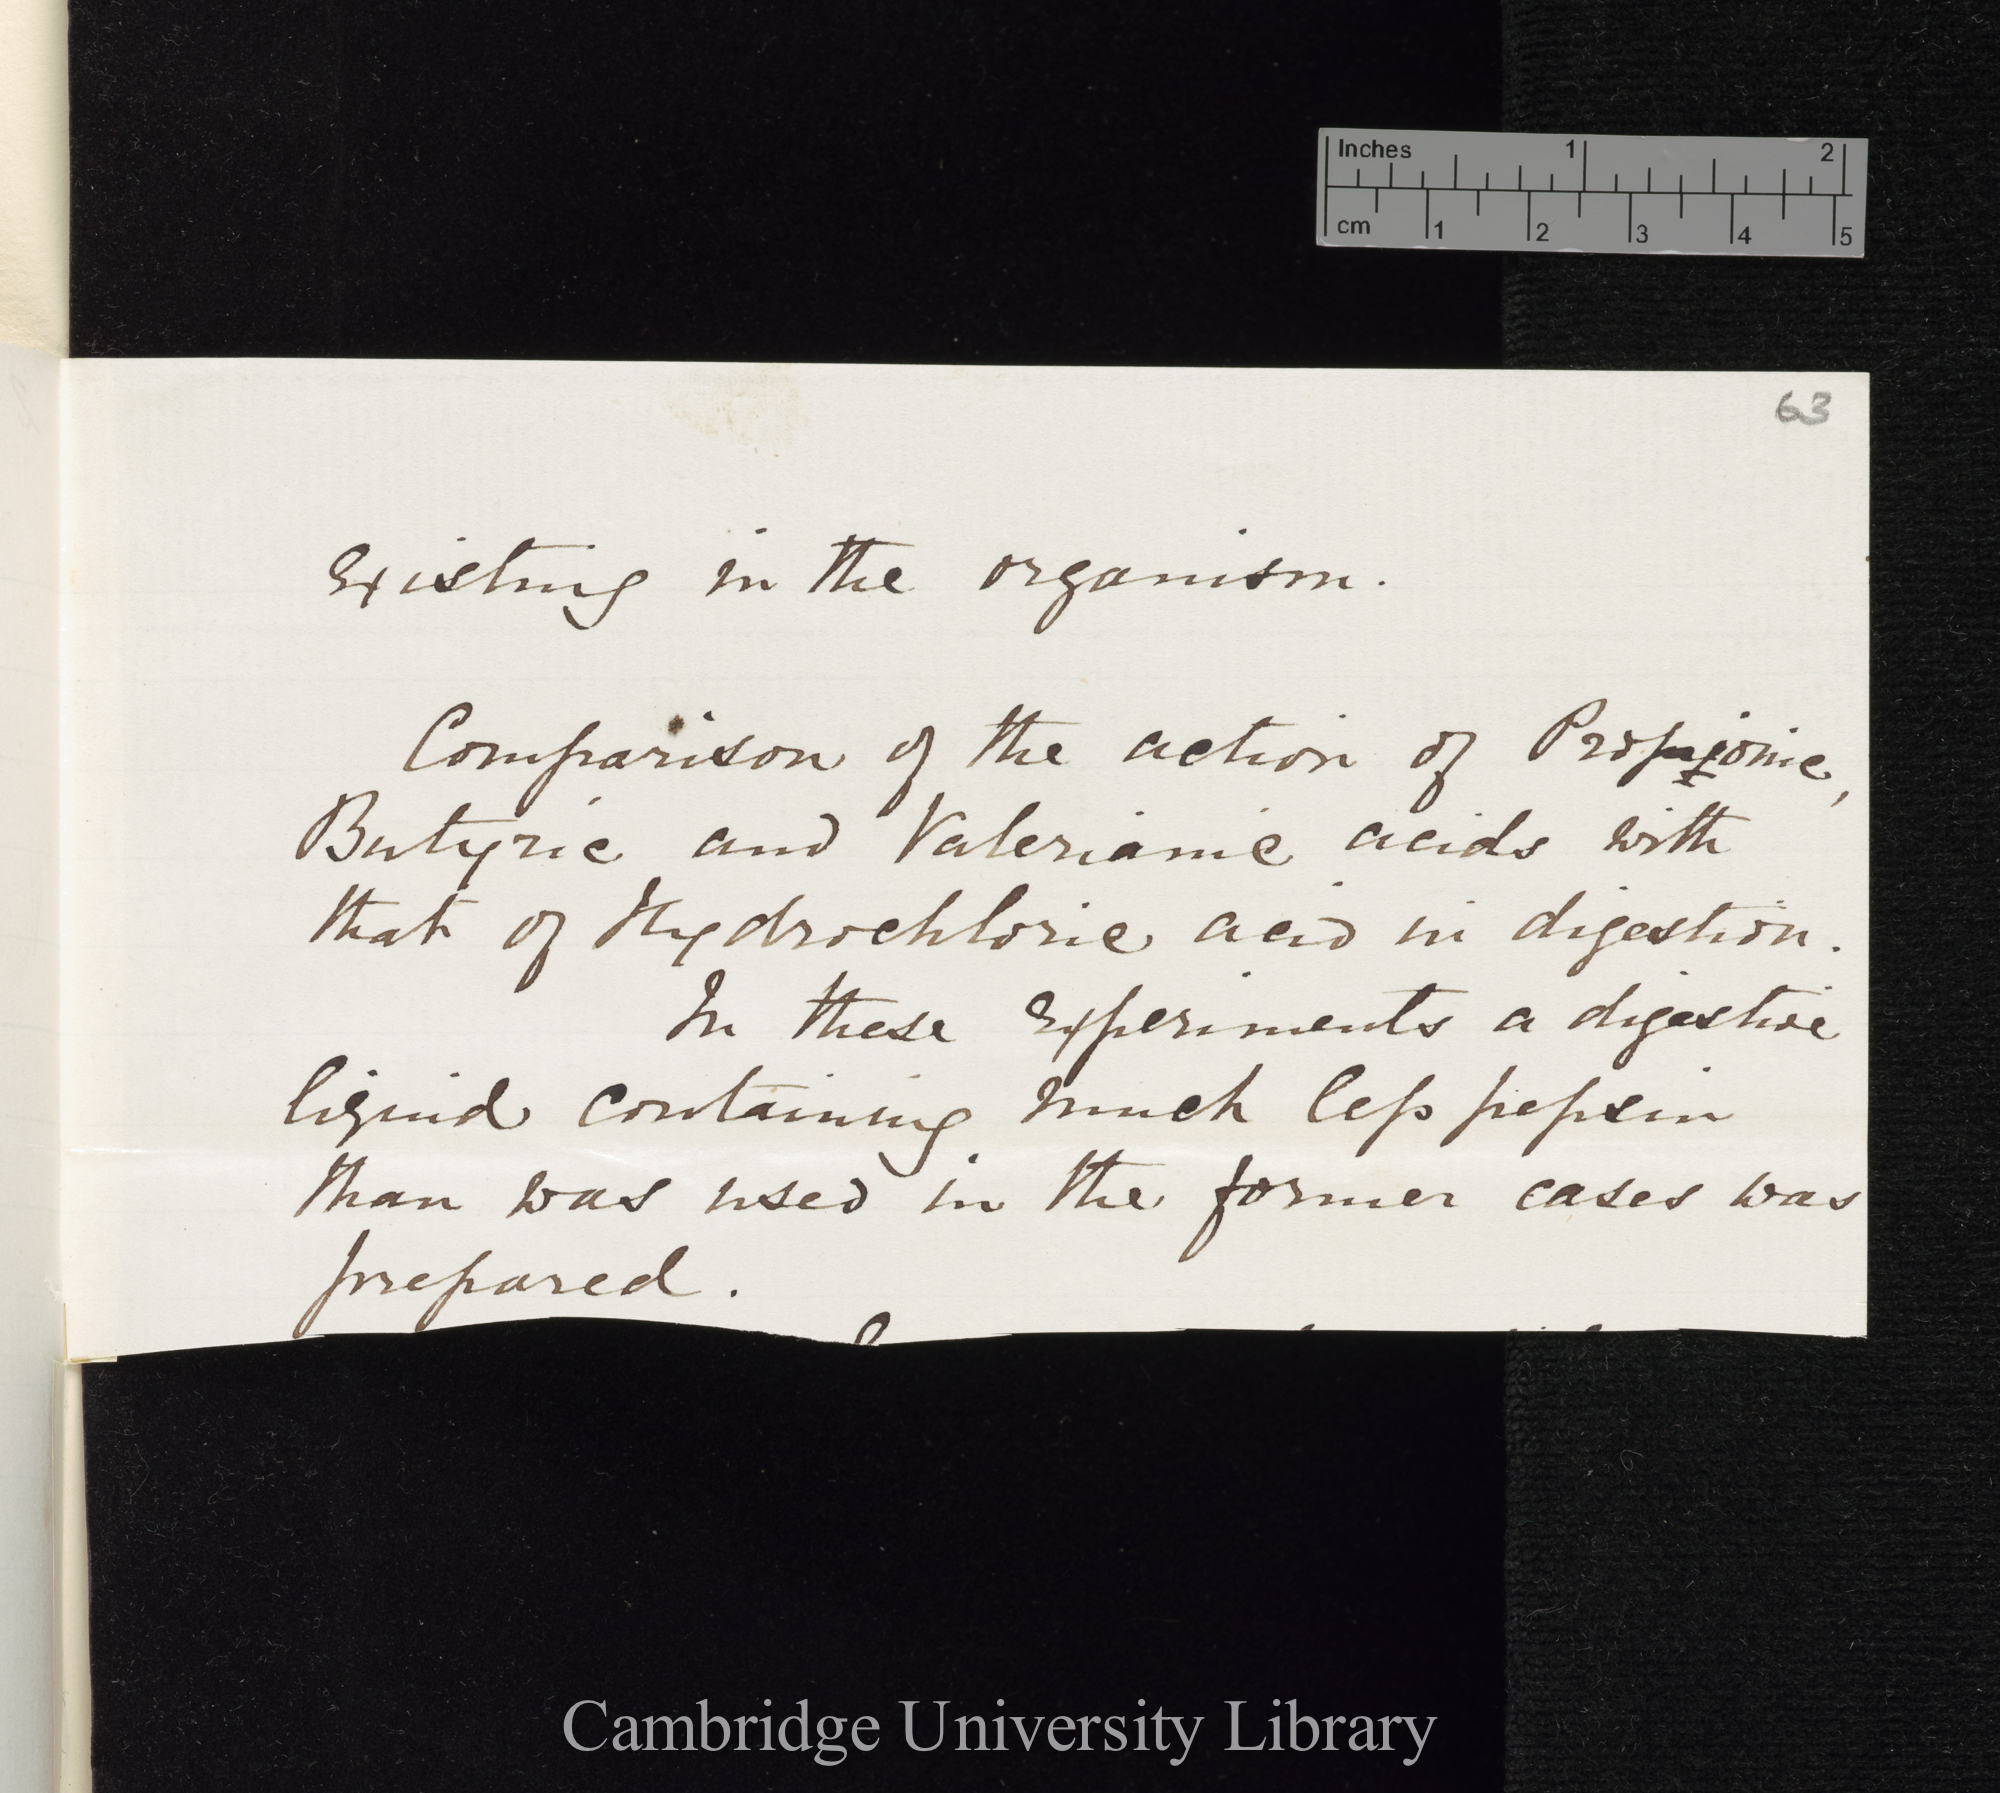 Inches 1 2
cm 1 2 3 4 5
63
existing in the organism.
Comparison of the action of Propionic,
Butyric and Valerianic acids with
that of Hydrochloric acid in digestion.
In these experiments a digestive
liquid containing much less pepsin
than was used in the former cases was
prepared.
Cambridge University Library